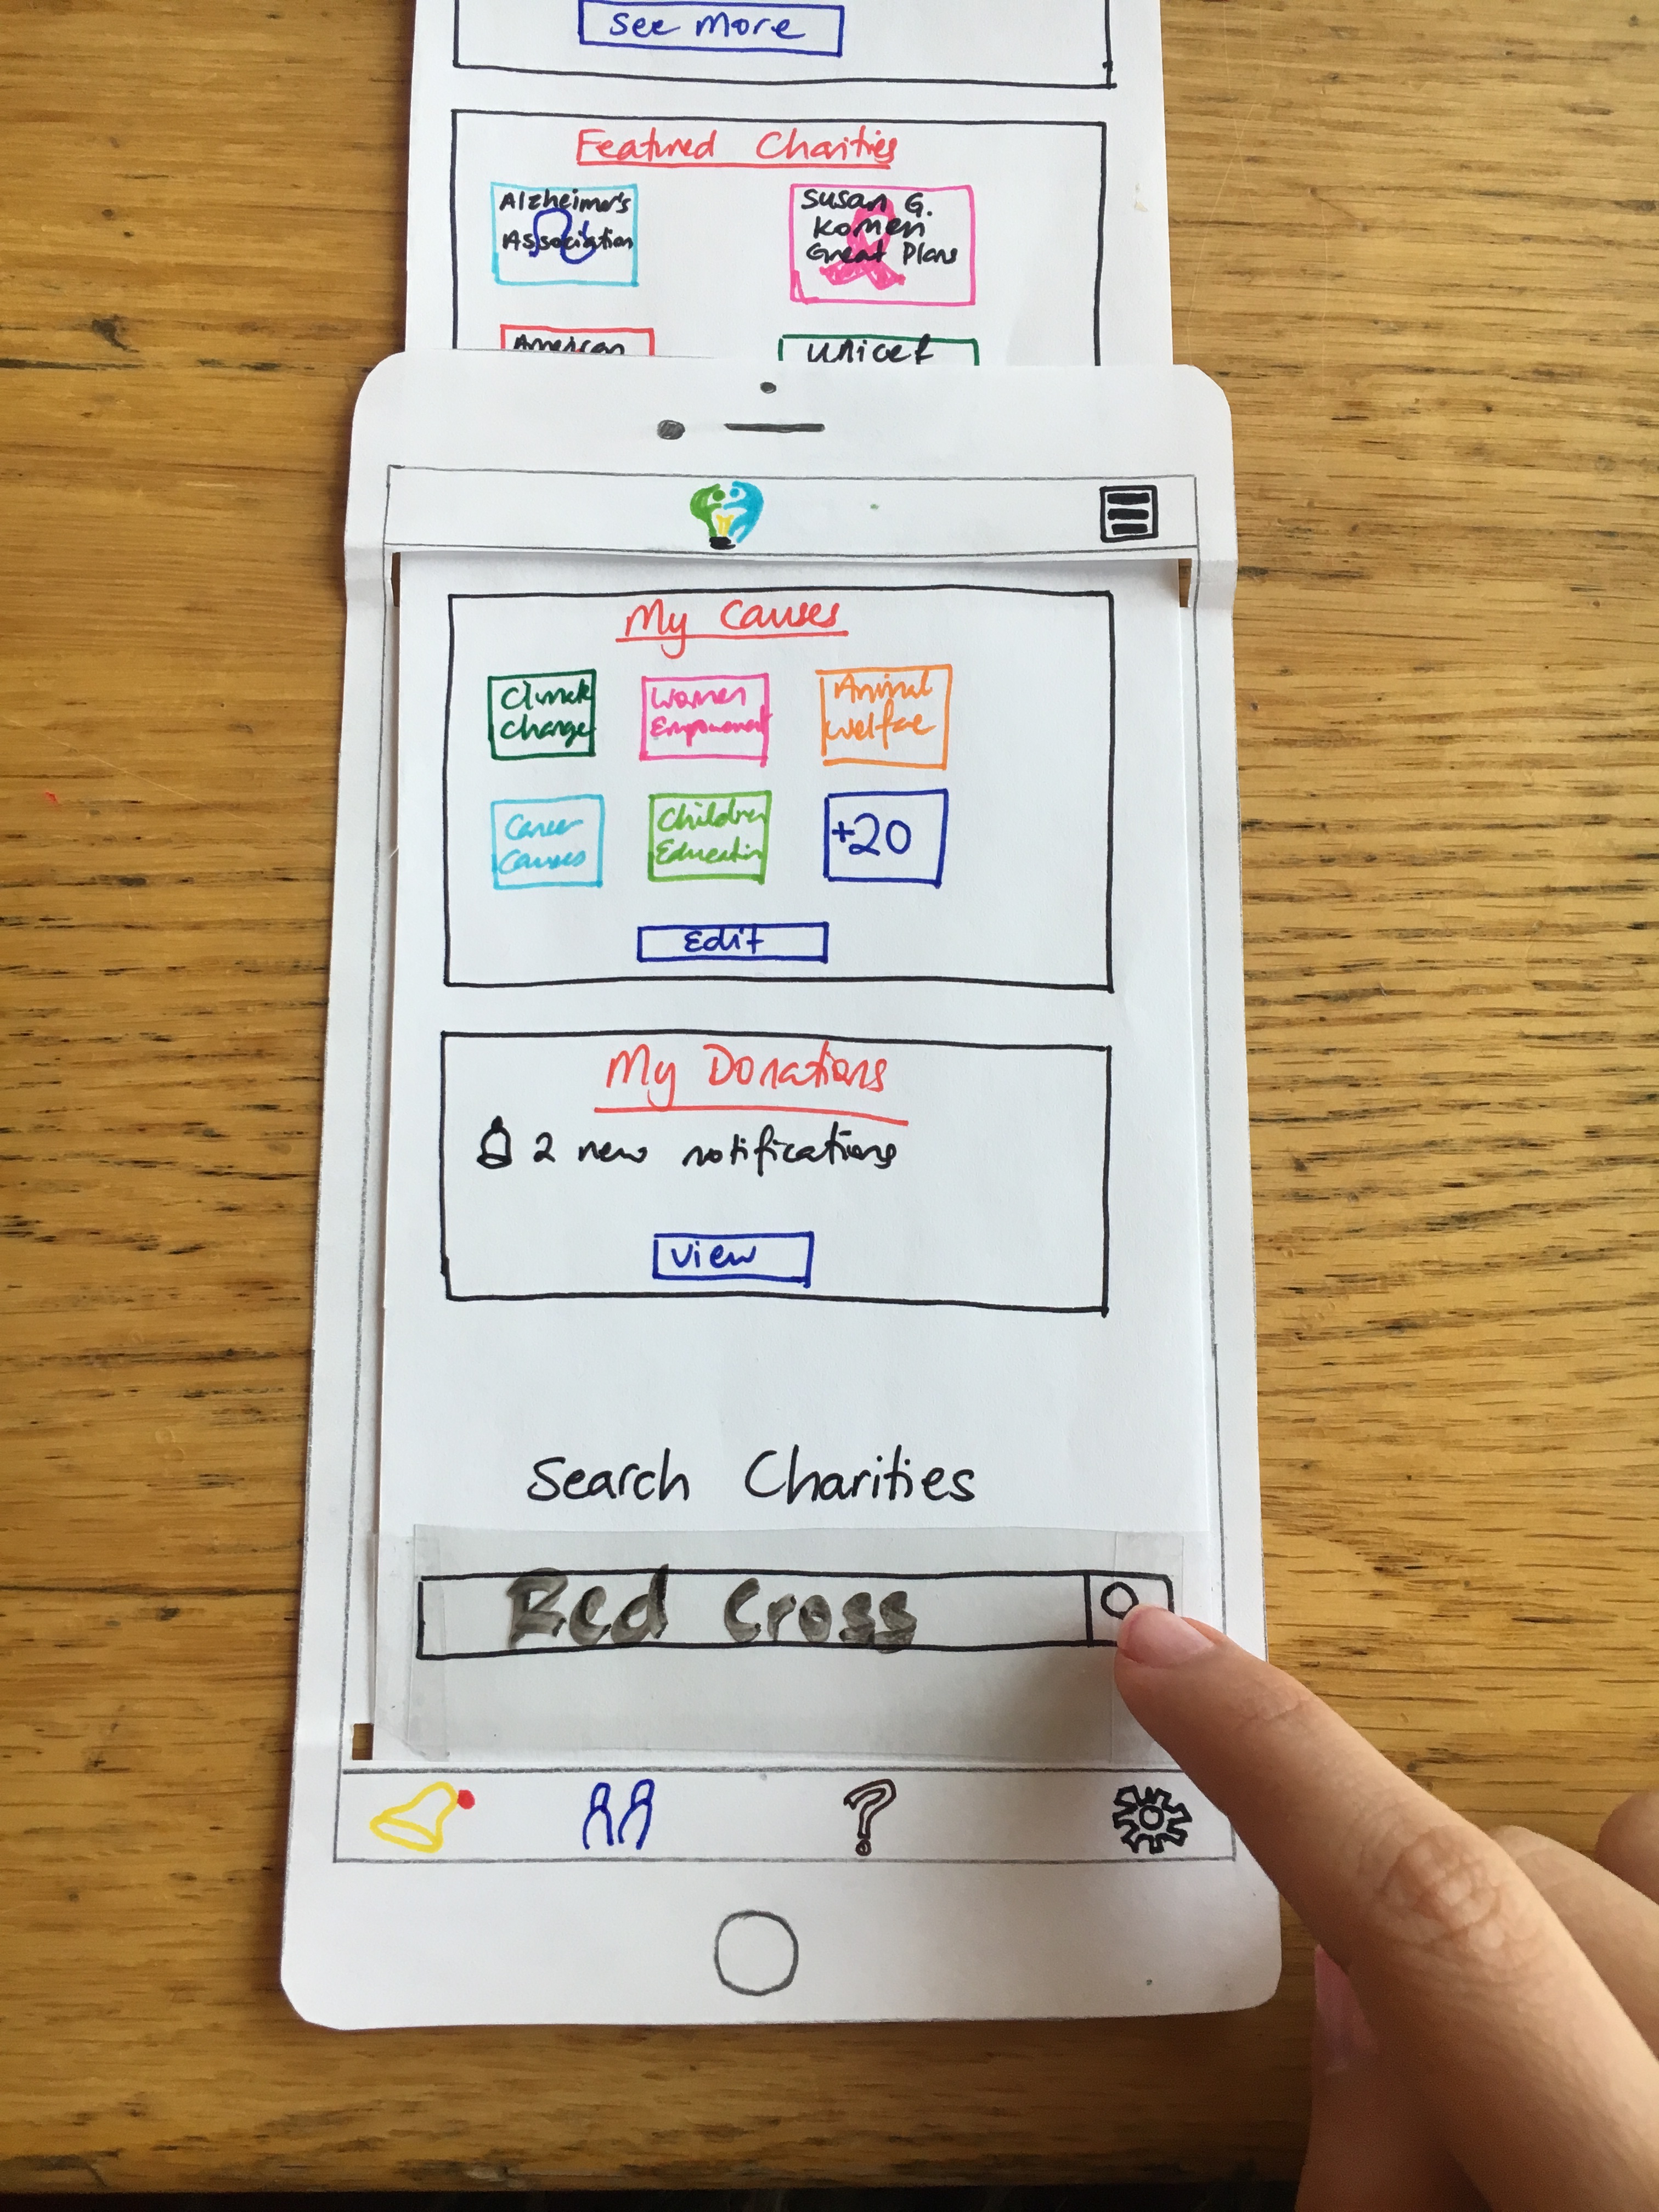 See More
Featured Charities
Alzheimer's
Association
Susan G.
Komen
Great Plans
American
Unicef
My Causes
Climate
Change
Women
Empowerment
Animal
Welfare
Cancer
Causes
Children
Education
+20
Edit
My Donations
2 new notifications
View
Search Charities
Red Cross
?